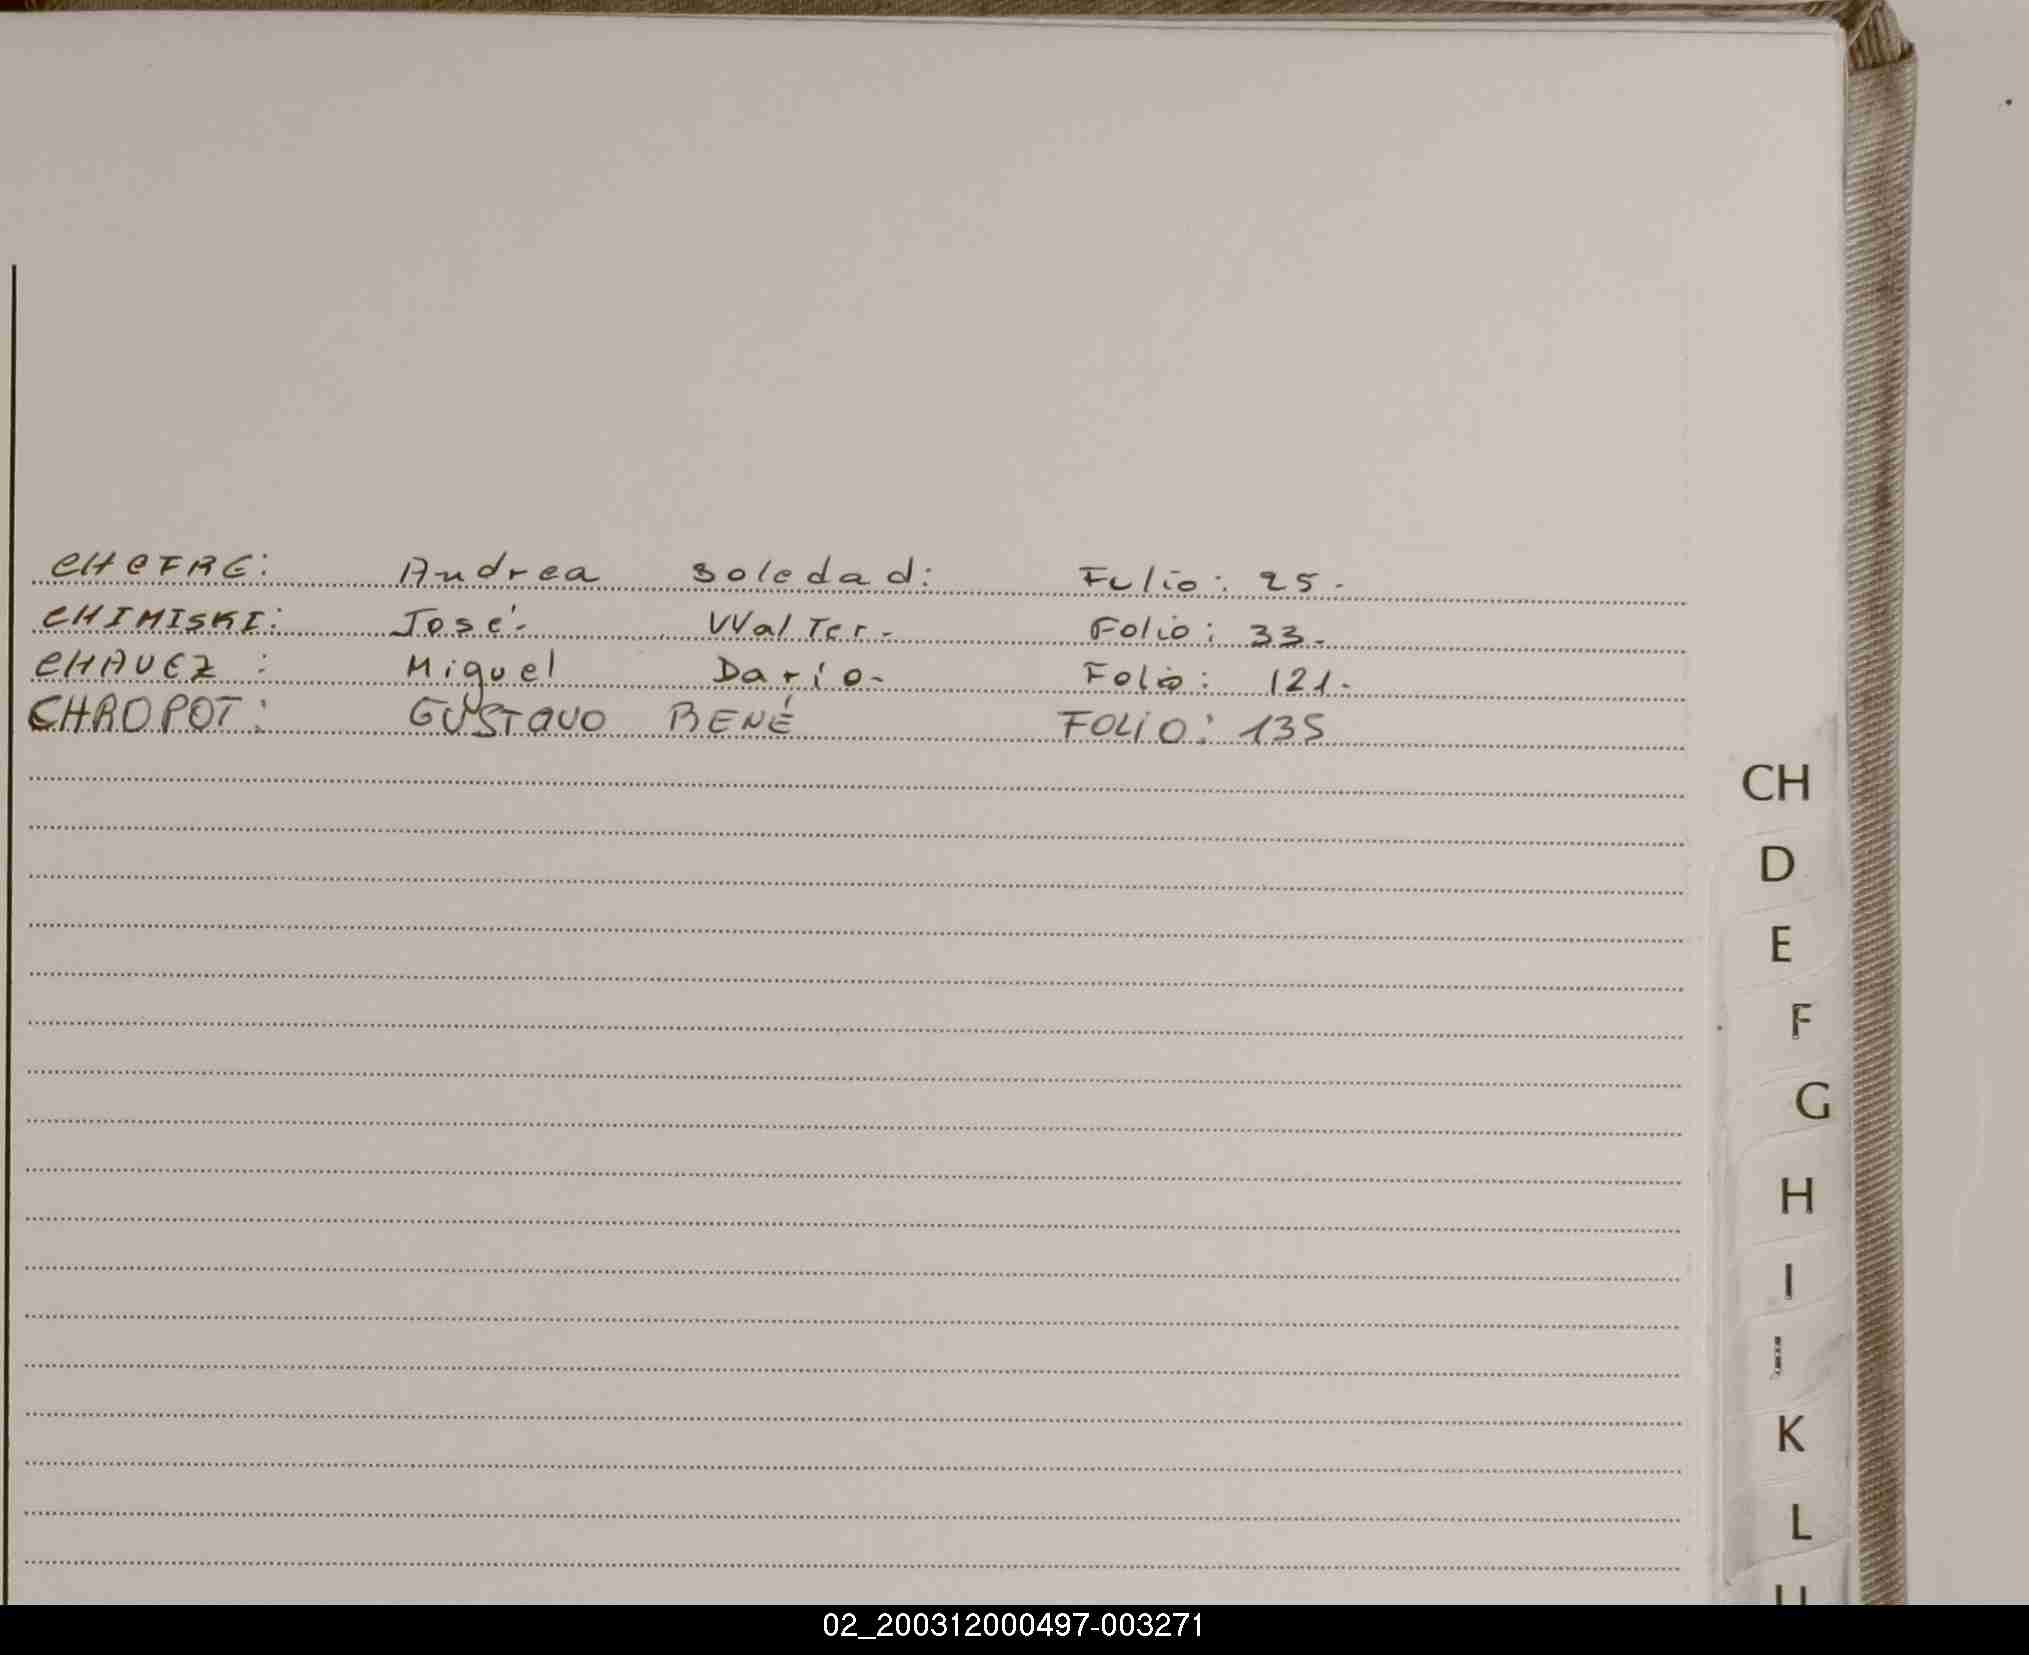 CHCFRE: Andrea Soledad: Folio: 25.
CHIMISKI: José.- Walter.- Folio: 33.-
CHAVEZ : Miguel Darío.- Folio: 121.-
CHAOPOT: GUSTAVO RENÉ FOLIO: 135
CH
D
E
F
G
H
I
K
L
02_200312000497-003271